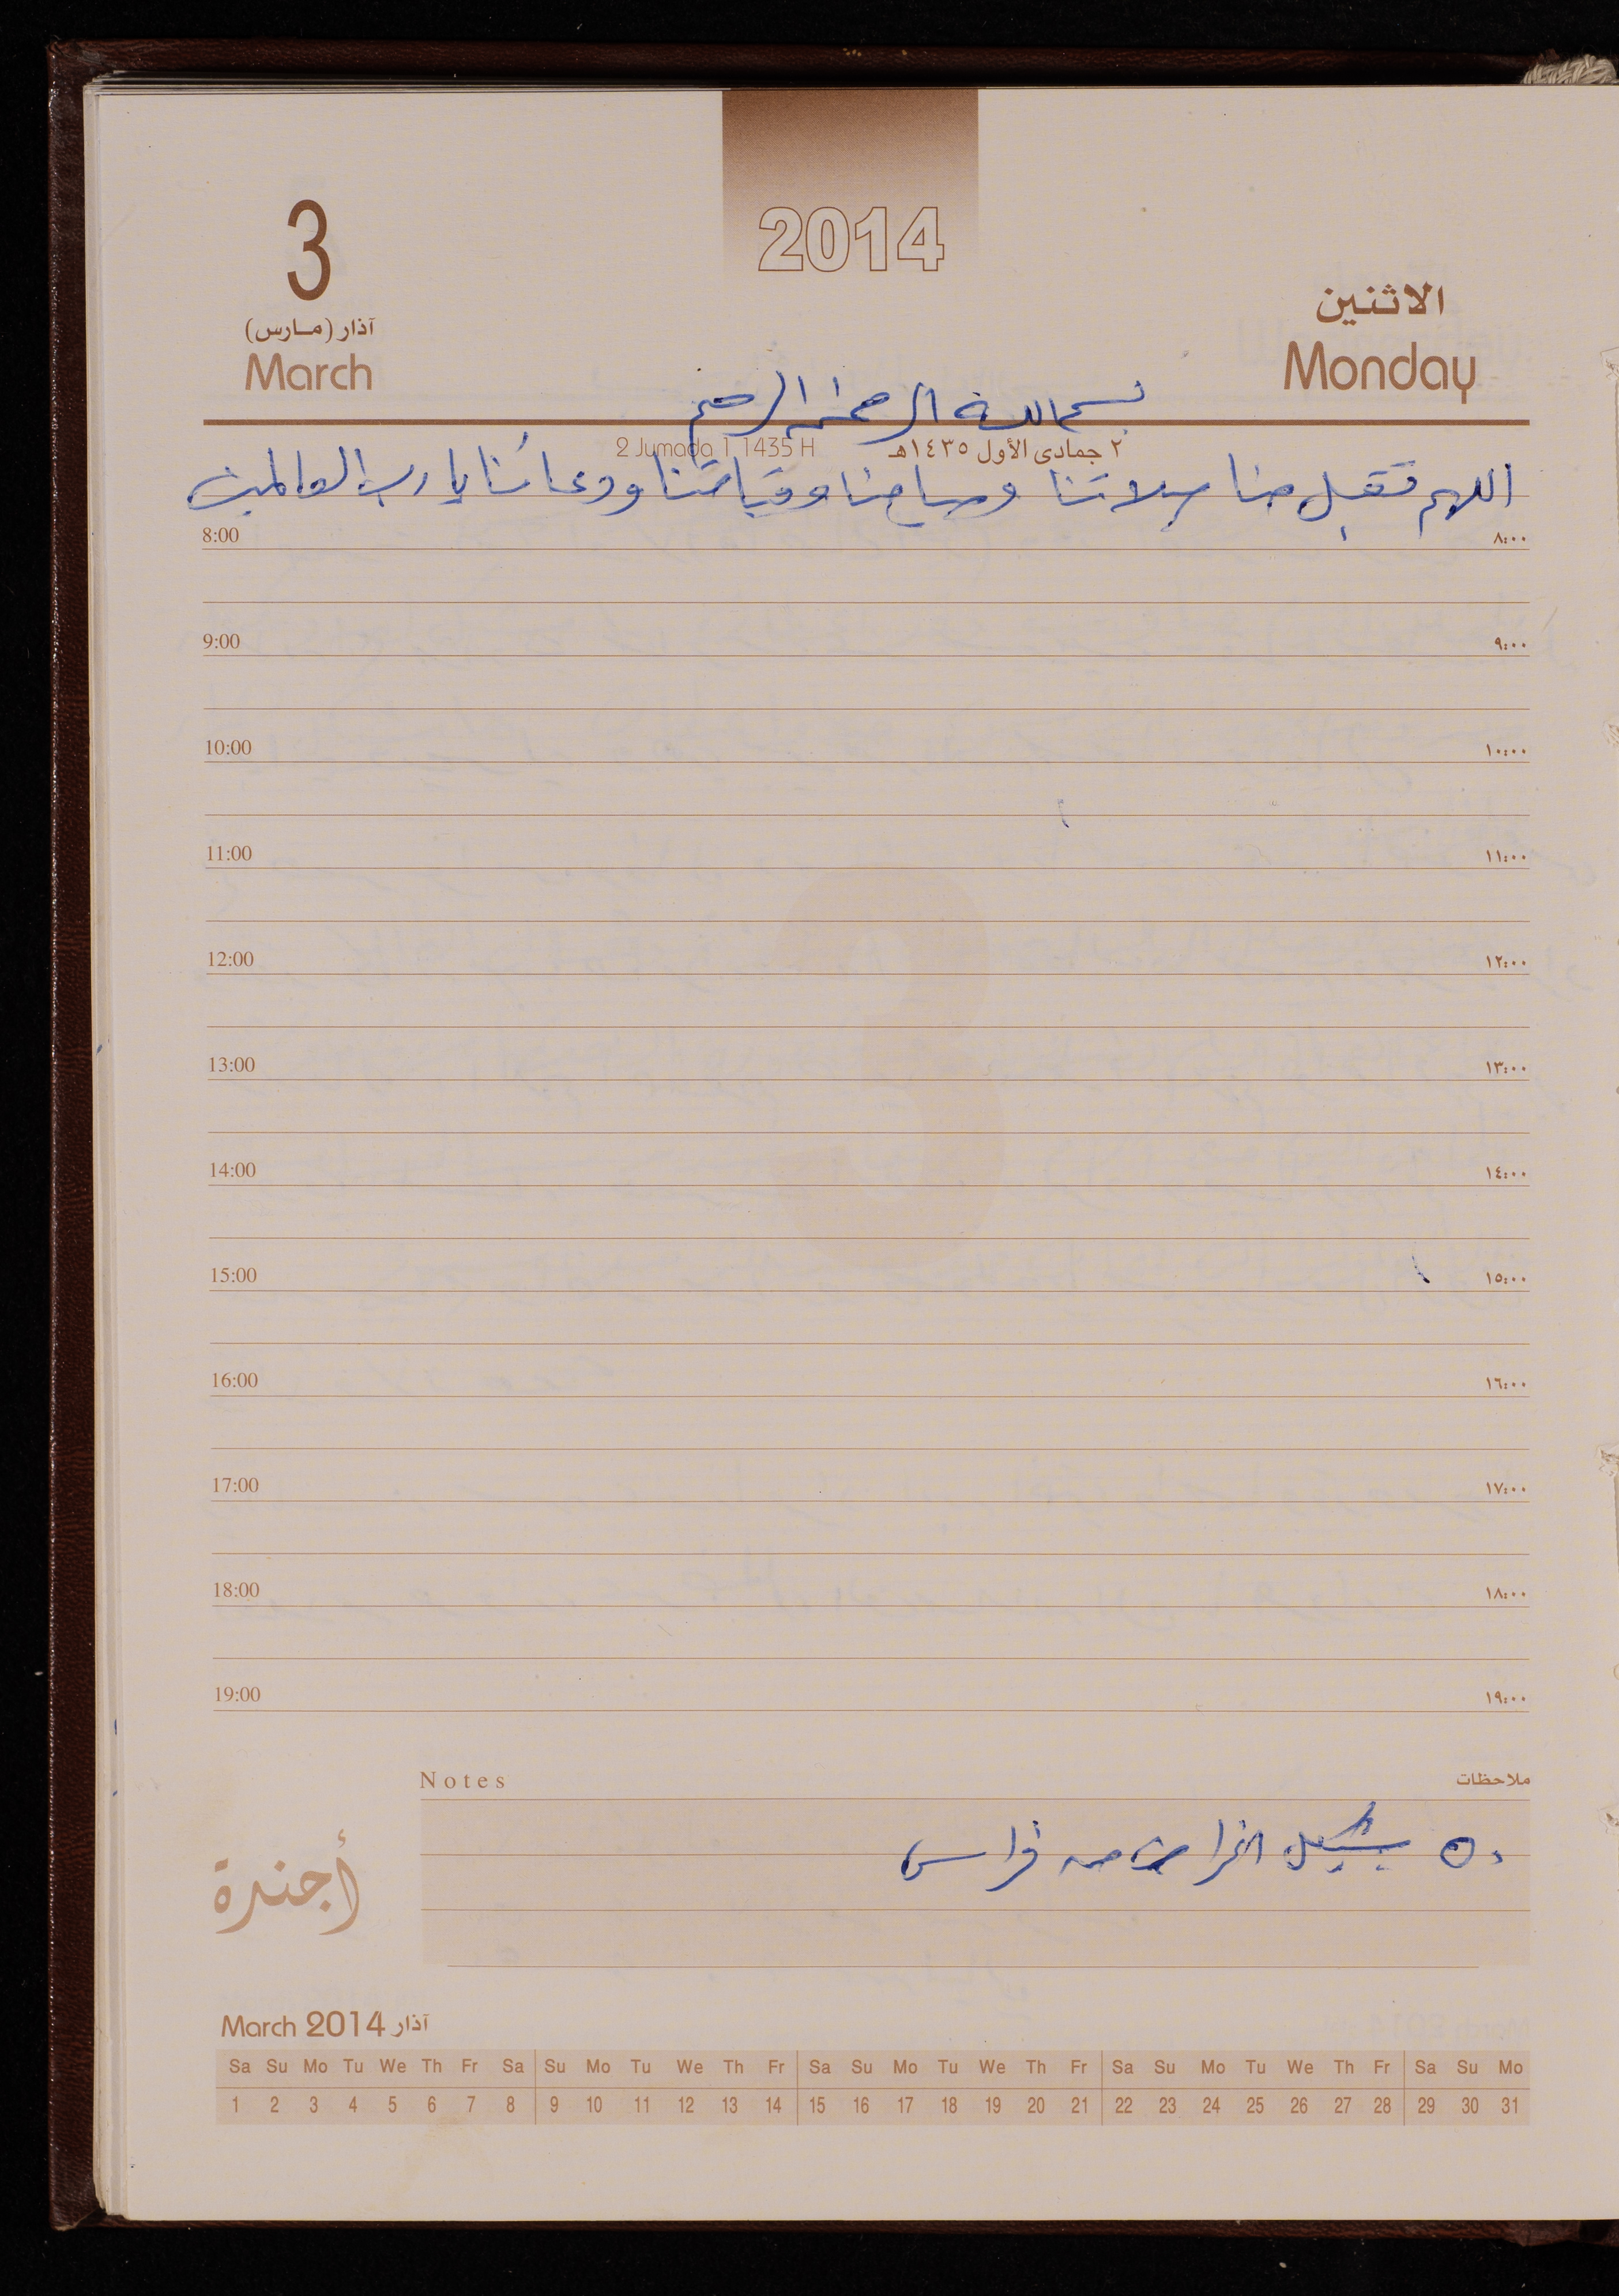 2014
3
آذار (مارس)
March
الاثنين
Monday
بسم الله الرحمن الرحيم
2 Jumada 1 1435 H
٢ جمادى الأول ١٤٣٥هـ
اللهم تقبل منا صلاتنا وصيامنا وقيامنا ودعائنا يا رب العالمين
8:00 ٨:٠٠
9:00 ٩:٠٠
10:00 ١٠:٠٠
11:00 ١١:٠٠
12:00 ١٢:٠٠
13:00 ١٣:٠٠
14:00 ١٤:٠٠
15:00 ١٥:٠٠
16:00 ١٦:٠٠
17:00 ١٧:٠٠
18:00 ١٨:٠٠
19:00 ١٩:٠٠
Notes ملاحظات
٥٠ من فراس
أجندة
March 2014 آذار
Sa Su Mo Tu We Th Fr Sa Su Mo Tu We Th Fr Sa Su Mo Tu We Th Fr Sa Su Mo Tu We Th Fr Sa Su Mo
1 2 3 4 5 6 7 8 9 10 11 12 13 14 15 16 17 18 19 20 21 22 23 24 25 26 27 28 29 30 31